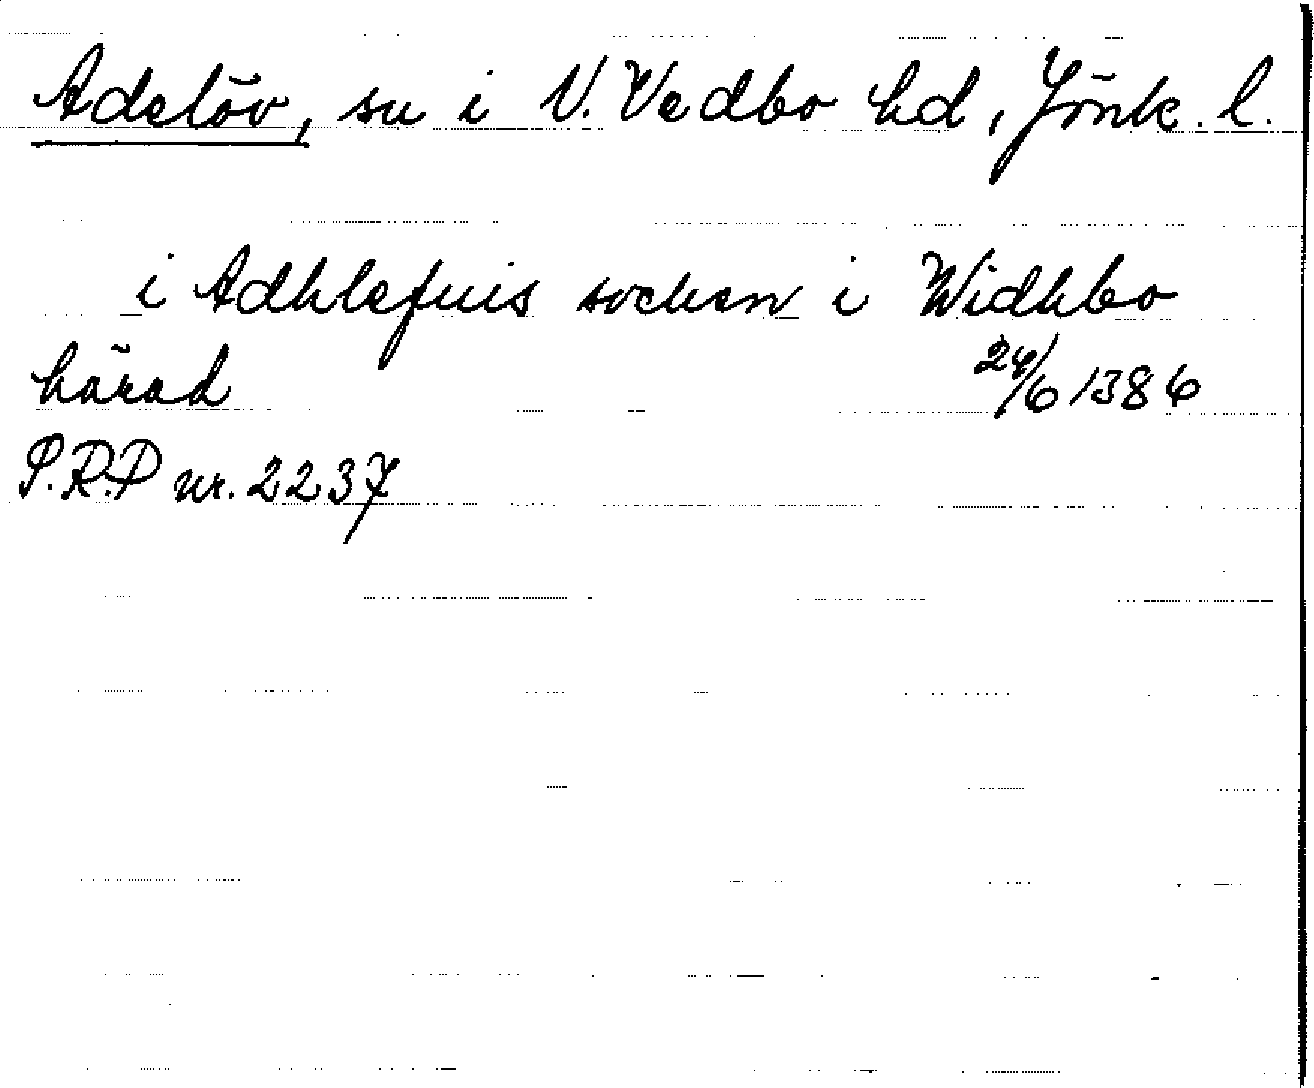 Adelöv, sn i N. Vedbo hd, Jönk. l.
i Adhlefuis socken i Widhbo
härad 24/6 1386
S.R.P nr. 2237